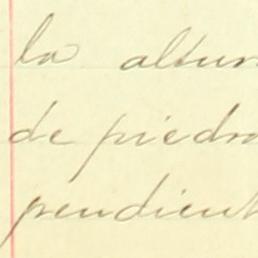 la altur
de piedra
pendient